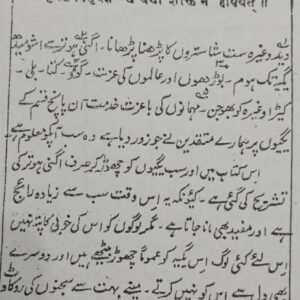 وید وغیرہ ست شاستروں کا پڑھنا پڑھانا۔ اگنی ہوتر سے اشومیدھ
یگیہ تک ہوم۔ بوڑھوں اور عالموں کی عزت۔ گؤ۔ کتا۔ بلی۔
کیڑا وغیرہ کو بھوجن۔ مہمانوں کی باعزت خدمت ان پانچ قسم کے
یگیوں پر ہمارے متقدمین نے جو زور دیا ہے وہ سب آپکو معلوم ہے
اس کتاب میں اور سب یگیوں کو چھوڑ کر صرف اگنی ہوتر کی
تشریح کی گئی ہے۔ کیونکہ یہ اس وقت سب سے زیادہ رائج
اور مفید بھی مانا جاتا ہے۔ مگر لوگوں کو اس کی خوبی کا پتہ نہیں
اس لئے کئی لوگ اس یگیہ کو عموماً چھوڑ بیٹھے ہیں اور دوسرے
بھی دل سے اس کو نہیں کرتے۔ مینے بہت سے سجنوں کی